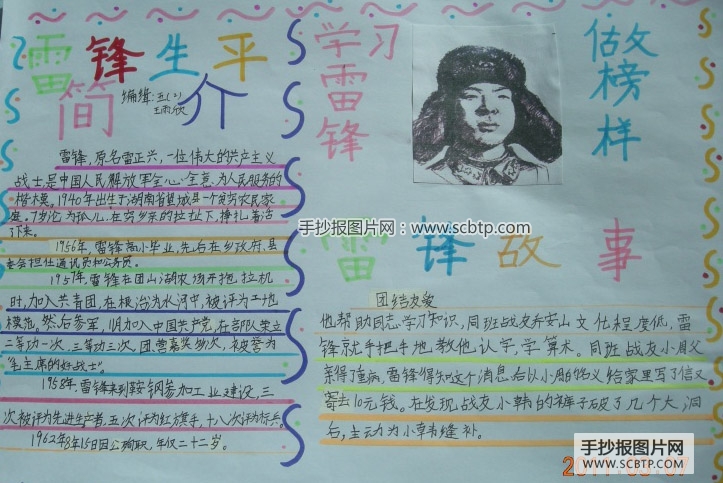 雷锋生平
简介
编辑:五(2)
王雨欣
雷锋,原名雷正兴,一位伟大的共产主义
战士,是中国人民解放军全心全意为人民服务的
楷模。1940年出生于湖南省望城县一个贫穷农民家
庭。7岁沦为孤儿,在穷乡亲的拉扯下,挣扎着活
了下来。
1956年,雷锋高小毕业,先后在乡政府,县
委会担任通讯员和公务员。
1957年,雷锋在团山湖农场开拖拉机
时,加入共青团,在根治为水河中,被评为工地
模范。然后参军,加入中国共产党,在部队荣立
二等功一次,三等功三次,团营嘉奖多次,被誉为
毛主席的好战士"
1958年,雷锋来到鞍钢参加工业建设,三
次被评为先进生产者,五次评为红旗手,十八次评为标兵。
1962年8年15日因公殉职,年仅二十二岁。
学习
雷
锋
做
榜
样
手抄报图片网:www.scbtp.com
雷锋故事
团结友爱
他帮助同志学习知识,同班战友乔安山文化程度低,雷
锋就手把手地教他认字,学算术。同班战友小周父
亲得了重病,雷锋得知这个消息后以小周的名义给家里写了信又
寄去10元钱。在发现战友小韩的裤子破了几个大洞
后,主动为小韩缝补。
手抄报图片网
WWW.SCBTP.COM